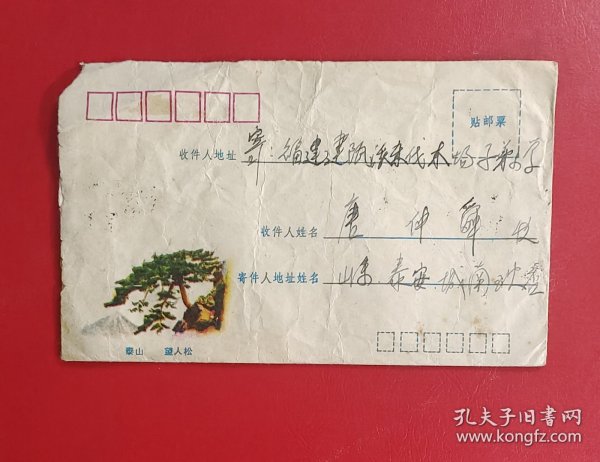 贴邮票
收件人地址 寄:福建建阳溪东伐木场子弟小学
收件人姓名 收
寄件人地址姓名 山东泰安城南
泰山 望人松
孔夫子旧书网
www.kongfz.com